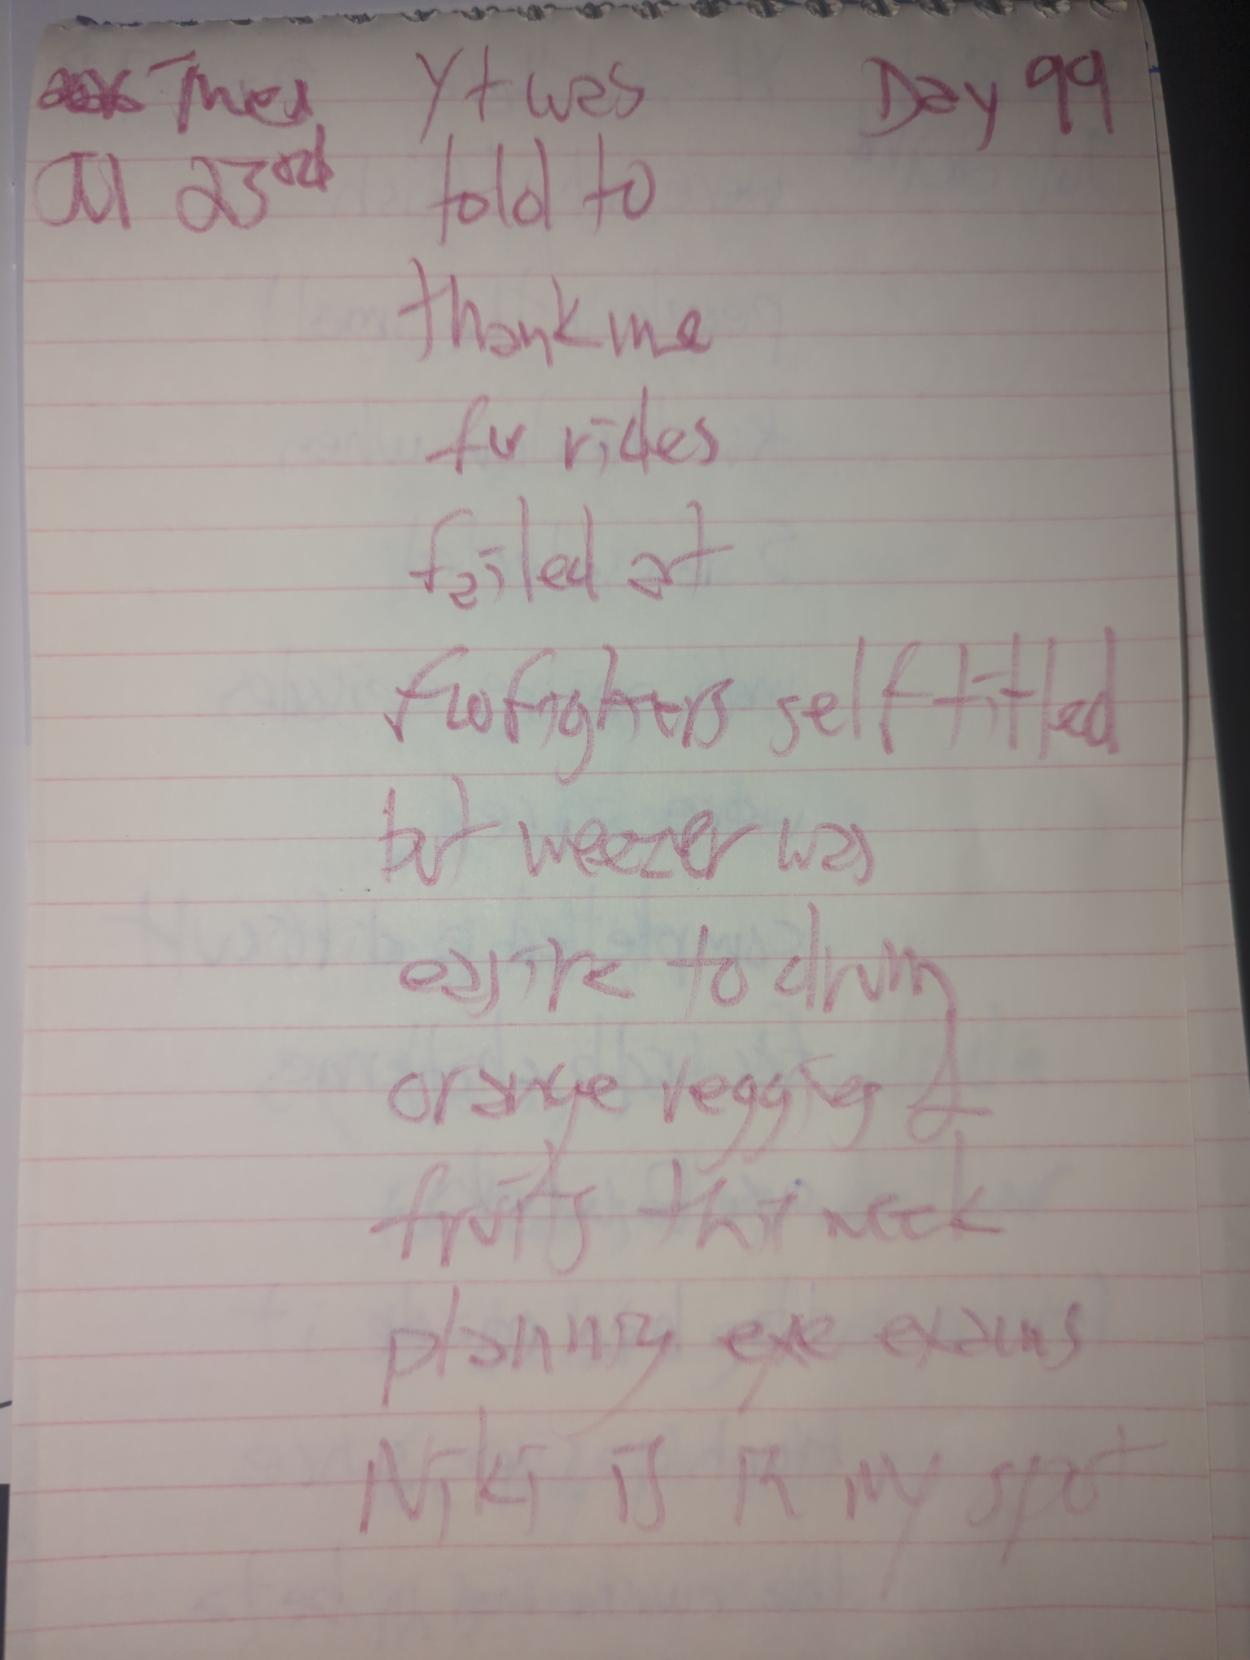 Thurs Yt was Day 99
Jul 23rd told to
thank me
for rides
failed at
foofighters self titled
but weezer was
easire to drum
orange veggies &
fruits this week
planning eye exams
Niki is in my spot